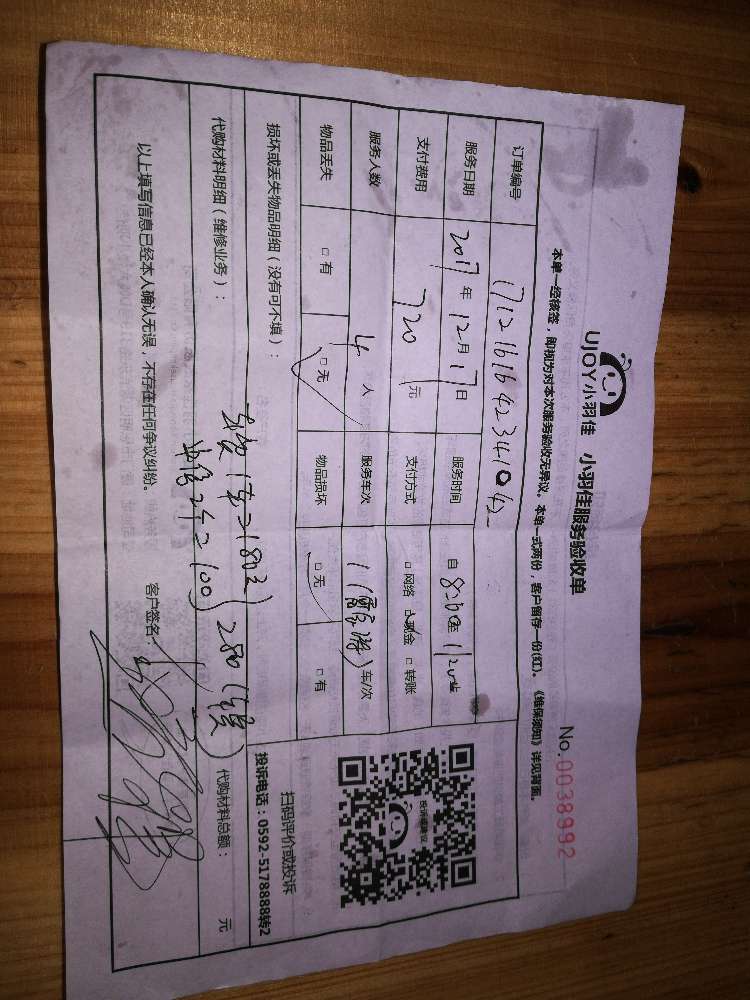 UJOY小羽佳 小羽佳服务验收单 No.0038992
本单一经核签，即视为对本次服务验收无异议。本单一式两份，客户留存一份(红)。《维保须知》详见背面。
订单编号 1712161642341042
服务日期 2017年12月17日 服务时间 自8:30至11:20止
支付费用 720元 支付方式 □网络 □现金 □转账
服务人数 4人 服务车次 1( )车/次
物品丢失 □有 □无 物品损坏 □无 □有
扫码评价或投诉
投诉电话：0592-5178888转2
投诉或建议
损坏或丢失物品明细（没有可不填）：
代购材料明细（维修业务）： 代购材料总额： 元
1车=180
=100
280
以上填写信息已经本人确认无误，不存在任何争议纠纷。 客户签名：